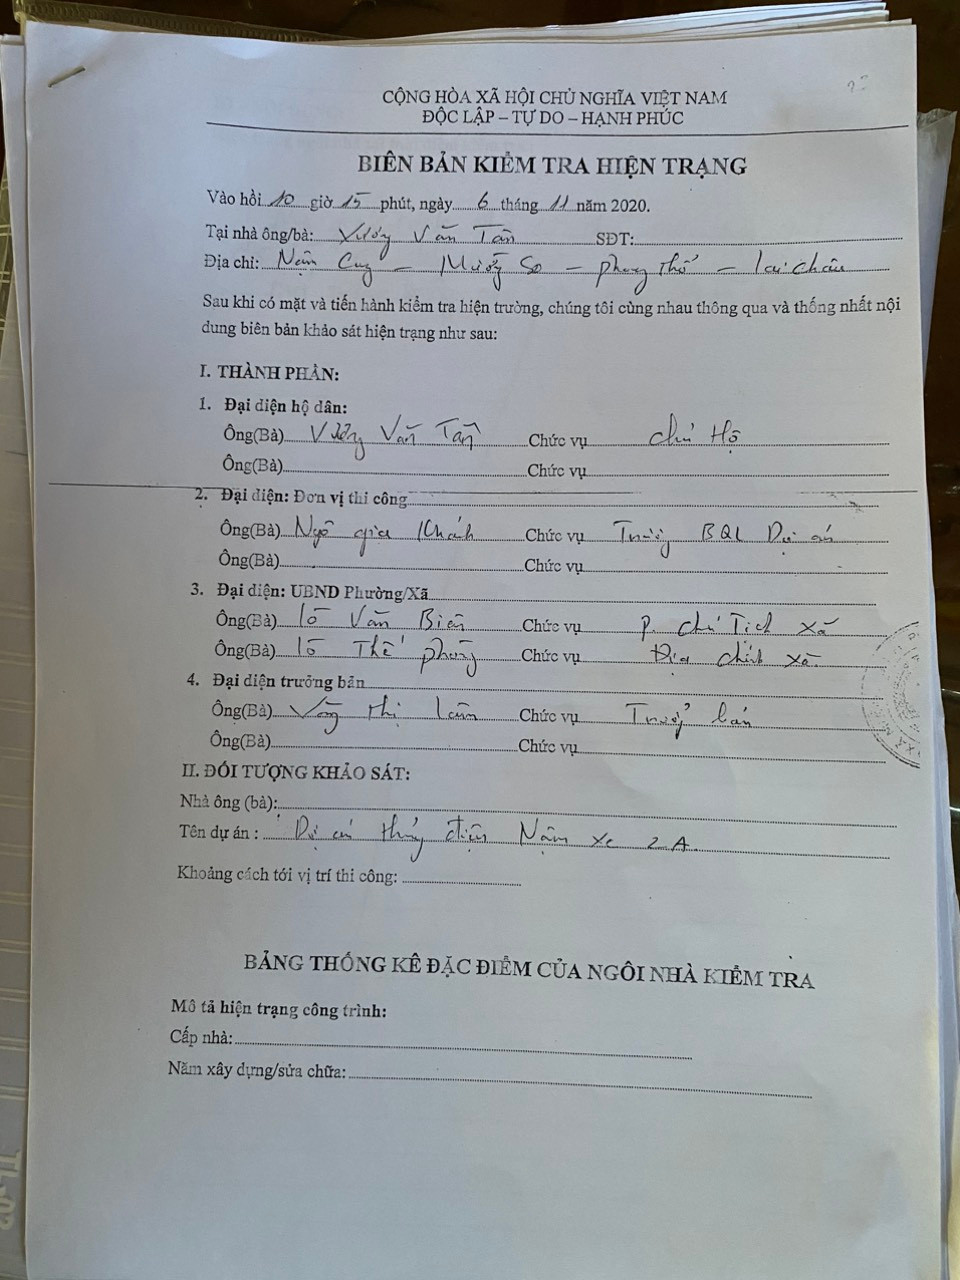 CỘNG HÒA XÃ HỘI CHỦ NGHĨA VIỆT NAM
ĐỘC LẬP – TỰ DO – HẠNH PHÚC
BIÊN BẢN KIỂM TRA HIỆN TRẠNG
Vào hồi 10 giờ 15 phút, ngày 6 tháng 11 năm 2020.
Tại nhà ông/bà: Vương Văn Tần SĐT:
Địa chỉ: Nậm Cung – Mường So – phong thổ – lai châu
Sau khi có mặt và tiến hành kiểm tra hiện trường, chúng tôi cùng nhau thông qua và thống nhất nội
dung biên bản khảo sát hiện trạng như sau:
I. THÀNH PHẦN:
1. Đại diện hộ dân:
Ông(Bà) Vương Văn Tần Chức vụ chủ Hộ
Ông(Bà) Chức vụ
2. Đại diện: Đơn vị thi công
Ông(Bà) Ngô gia Khánh Chức vụ Trưởng BQL Dự án
Ông(Bà) Chức vụ
3. Đại diện: UBND Phường/Xã
Ông(Bà) lò Văn Biên Chức vụ P. chủ Tịch xã
Ông(Bà) lò Thế phùng Chức vụ Địa chính xã
4. Đại diện trưởng bản
Ông(Bà) thị Chức vụ Trưởng bản
Ông(Bà) Chức vụ
II. ĐỐI TƯỢNG KHẢO SÁT:
Nhà ông (bà):
Tên dự án : Dự án thủy điện Nậm xe 2A
Khoảng cách tới vị trí thi công:
BẢNG THỐNG KÊ ĐẶC ĐIỂM CỦA NGÔI NHÀ KIỂM TRA
Mô tả hiện trạng công trình:
Cấp nhà:
Năm xây dựng/sửa chữa: